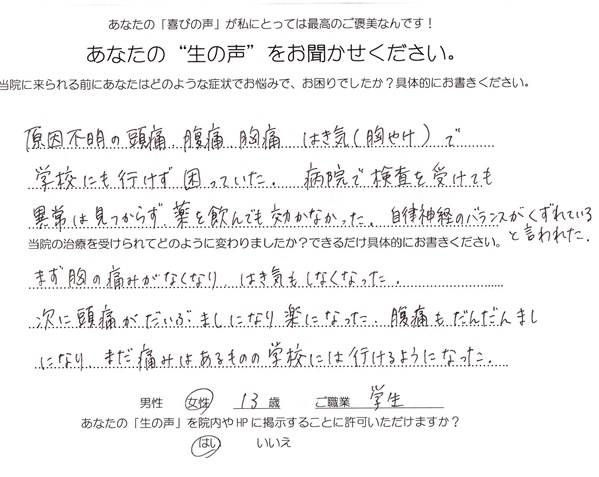 あなたの「喜びの声」が私にとっては最高のご褒美なんです！
あなたの“生の声”をお聞かせください。
当院に来られる前にあなたはどのような症状でお悩みで、お困りでしたか？具体的にお書きください。
原因不明の頭痛、腹痛、胸痛、はき気(胸やけ)で
学校にも行けず困っていた。病院で検査を受けても
異常は見つからず、薬を飲んでも効かなかった。自律神経のバランスがくずれている
と言われた。
当院の治療を受けられてどのように変わりましたか？できるだけ具体的にお書きください。
まず胸の痛みがなくなり、はき気もしなくなった。
次に頭痛がだいぶましになり楽になった。腹痛もだんだんまし
になり、まだ痛みはあるものの学校には行けるようになった。
男性 女性 13 歳 ご職業 学生
あなたの「生の声」を院内やHPに掲示することに許可いただけますか？
はい いいえ